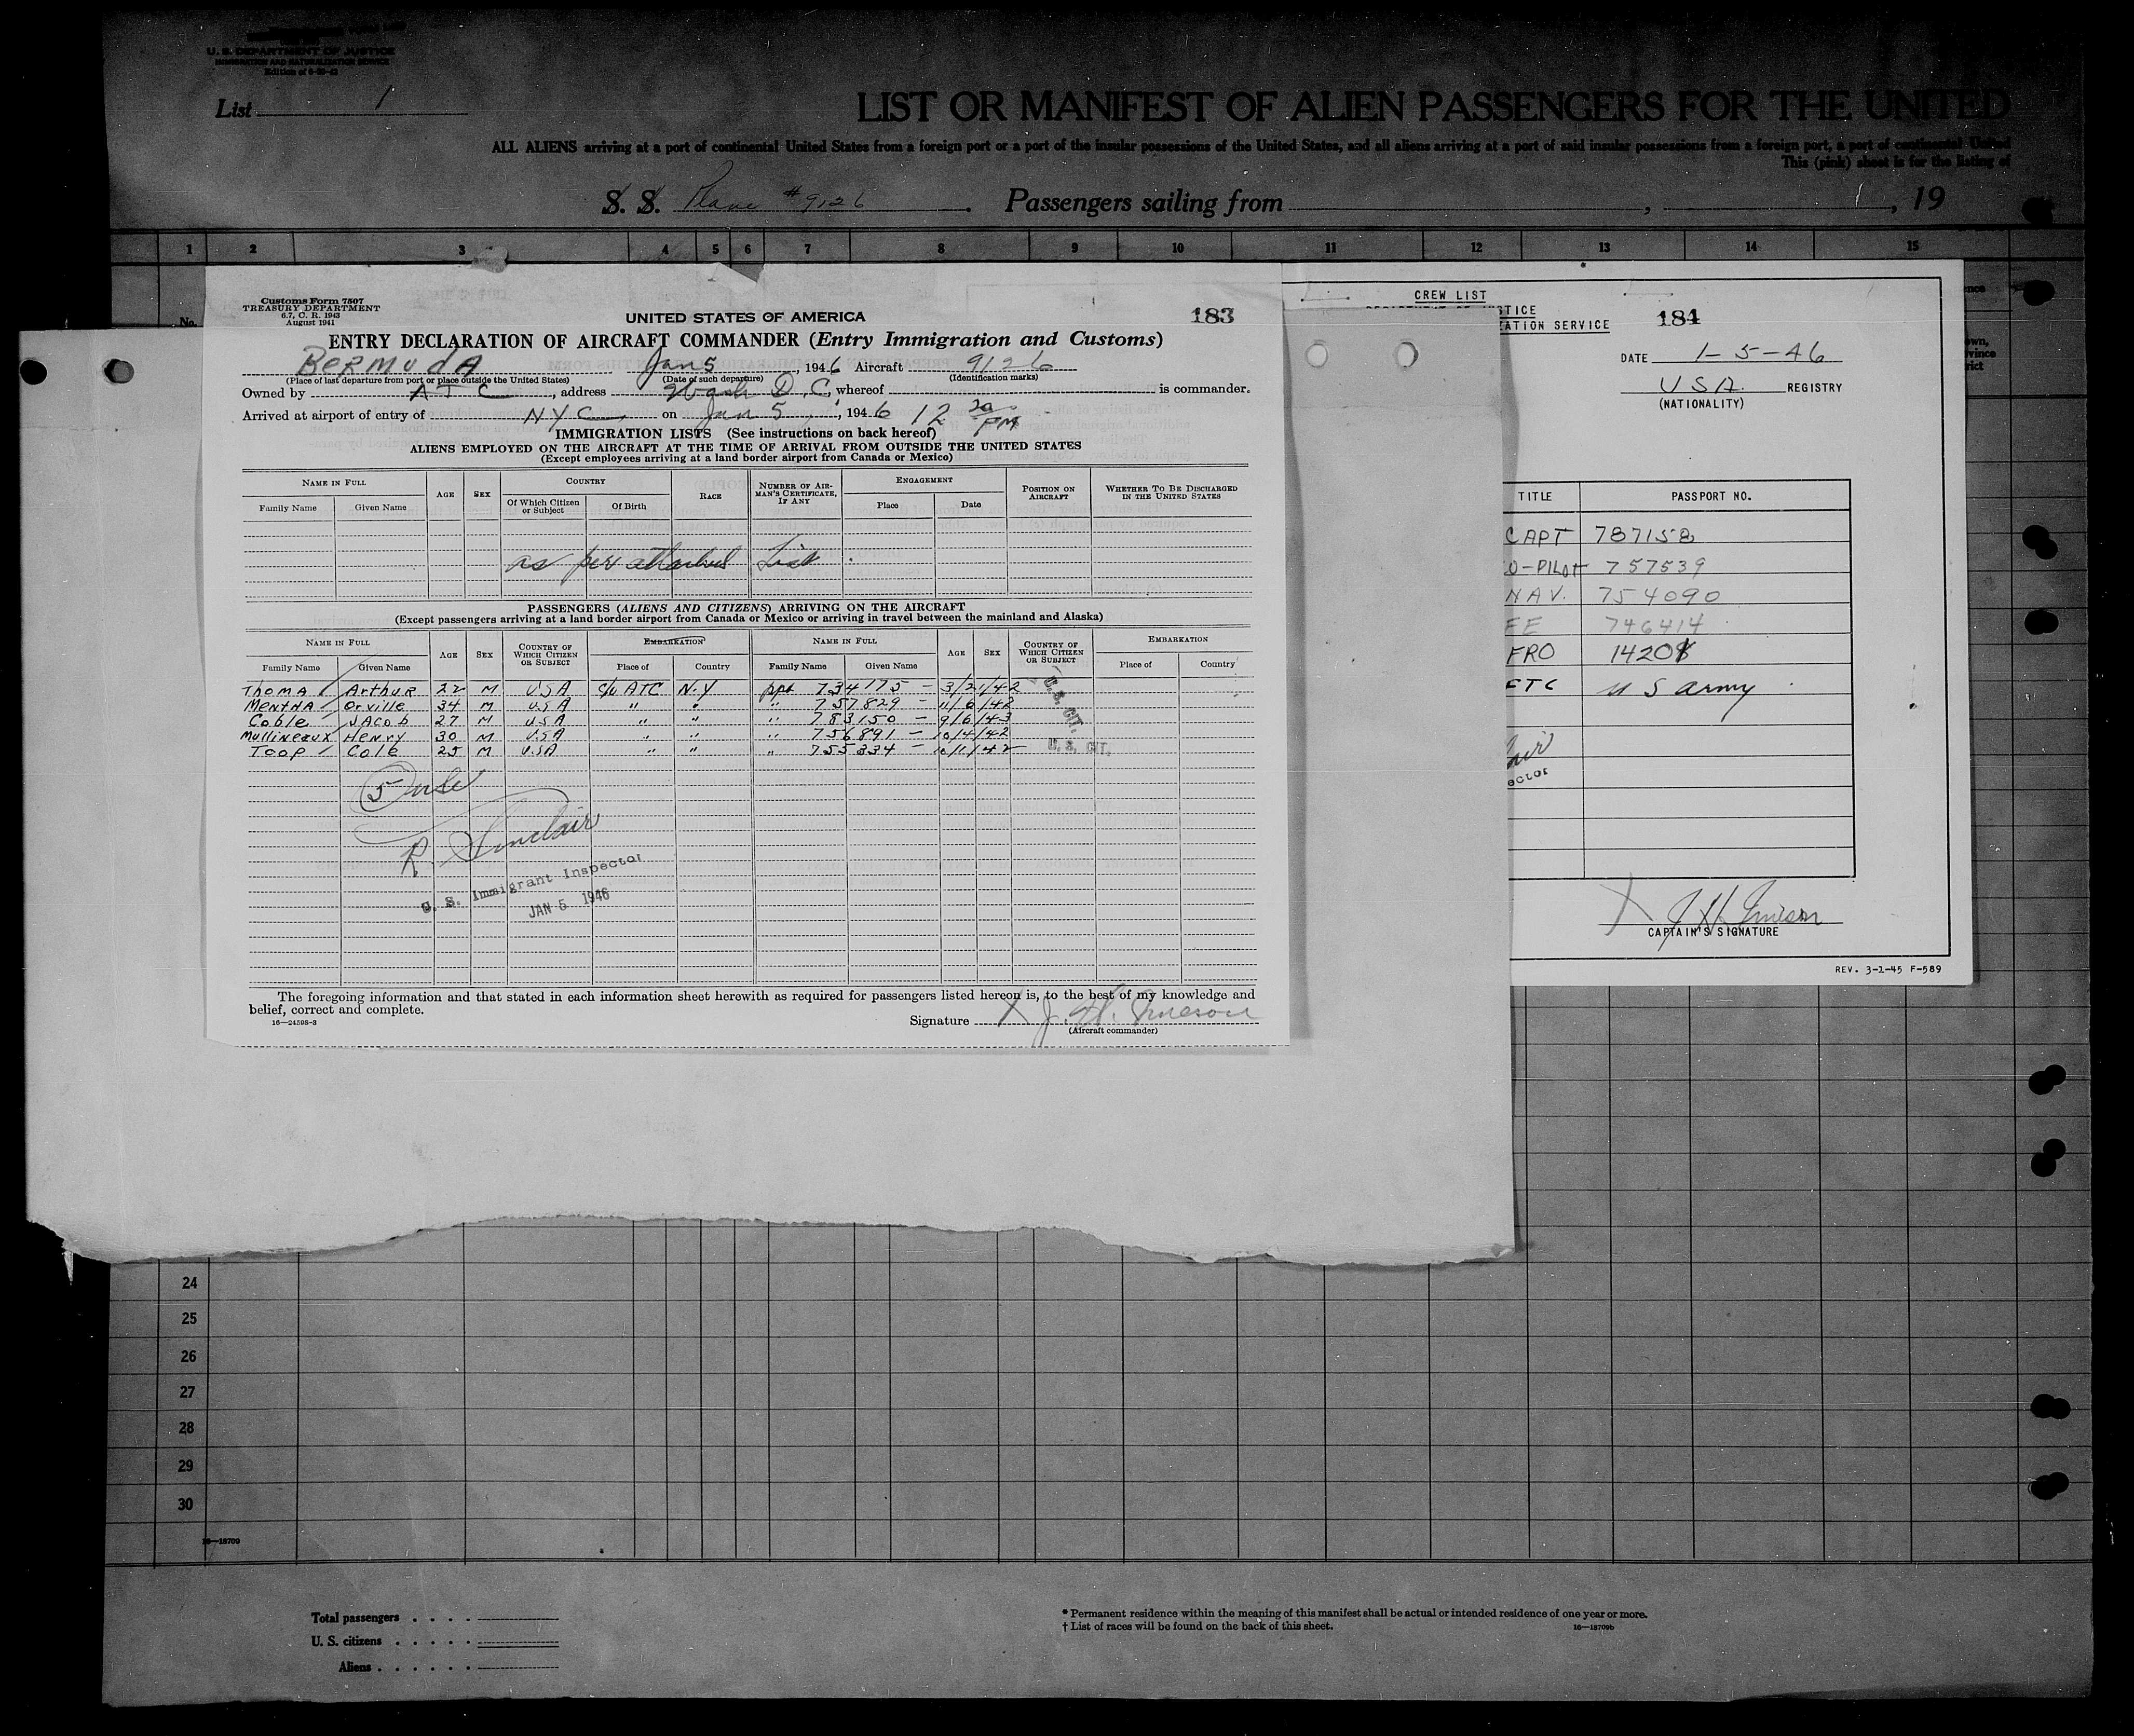 U. S. DEPARTMENT OF JUSTICE
IMMIGRATION AND NATURALIZATION SERVICE
List 1
LIST OR MANIFEST OF ALIEN PASSENGERS FOR THE UNITED
ALL ALIENS arriving at a port of continental United States from a foreign port or a port of the insular possessions of the United States, and all aliens arriving at a port of said insular possessions from a foreign port, a port of continental United
This (pink) sheet is for the listing of
S. S. Plane #9126. Passengers sailing from , , 19
1 2 3 4 5 6 7 8 9 10 11 12 13 14 15
No.
Customs Form 7507
TREASURY DEPARTMENT
6.7, C. R. 1943
August 1941
UNITED STATES OF AMERICA
183
ENTRY DECLARATION OF AIRCRAFT COMMANDER (Entry Immigration and Customs)
BERMUDA Jan 5, 1946 Aircraft 9126
(Place of last departure from port or place outside the United States) (Date of such departure) (Identification marks)
Owned by ATC, address Wash D.C., whereof is commander.
Arrived at airport of entry of NYC on Jan 5, 1946 12 20 PM
IMMIGRATION LISTS (See instructions on back hereof)
ALIENS EMPLOYED ON THE AIRCRAFT AT THE TIME OF ARRIVAL FROM OUTSIDE THE UNITED STATES
(Except employees arriving at a land border airport from Canada or Mexico)
NAME IN FULL AGE SEX COUNTRY RACE NUMBER OF AIRMAN'S CERTIFICATE, IF ANY ENGAGEMENT POSITION ON AIRCRAFT WHETHER TO BE DISCHARGED IN THE UNITED STATES
Family Name Given Name Of Which Citizen or Subject Of Birth Place Date
as per attached List.
PASSENGERS (ALIENS AND CITIZENS) ARRIVING ON THE AIRCRAFT
(Except passengers arriving at a land border airport from Canada or Mexico or arriving in travel between the mainland and Alaska)
NAME IN FULL AGE SEX COUNTRY OF WHICH CITIZEN OR SUBJECT EMBARKATION NAME IN FULL AGE SEX COUNTRY OF WHICH CITIZEN OR SUBJECT EMBARKATION
Family Name Given Name Place of Country Family Name Given Name Place of Country
Thoma Arthur 22 M USA c/o ATC N.Y ppt 734175 - 3/21/42
Mentha Orville 34 M USA " " " 757829 - 11/6/42
Coble Jacob 27 M USA " " " 783150 - 9/6/43
Mullineaux Henry 30 M USA " " " 756891 - 10/4/42
Toop Cole 25 M USA " " " 755334 - 10/1/42
U. S. CIT.
U. S. CIT.
5
R. Sinclair
U. S. Immigrant Inspector
JAN 5 1946
The foregoing information and that stated in each information sheet herewith as required for passengers listed hereon is, to the best of my knowledge and
belief, correct and complete.
16—24598-3
Signature X J. H. Imeson
(Aircraft commander)
CREW LIST
STICE
ZATION SERVICE
184
DATE 1-5-46
USA. REGISTRY
(NATIONALITY)
TITLE PASSPORT NO.
CAPT 787158
O-PILOT 757539
NAV. 754090
FE 746414
FRO 14208
FTC U S army
ector
X J H Imeson
CAPTAIN'S SIGNATURE
REV. 3-1-45 F-589
24
25
26
27
28
29
30
16—18709
Total passengers
U. S. citizens
Aliens
* Permanent residence within the meaning of this manifest shall be actual or intended residence of one year or more.
† List of races will be found on the back of this sheet.
16—18709b